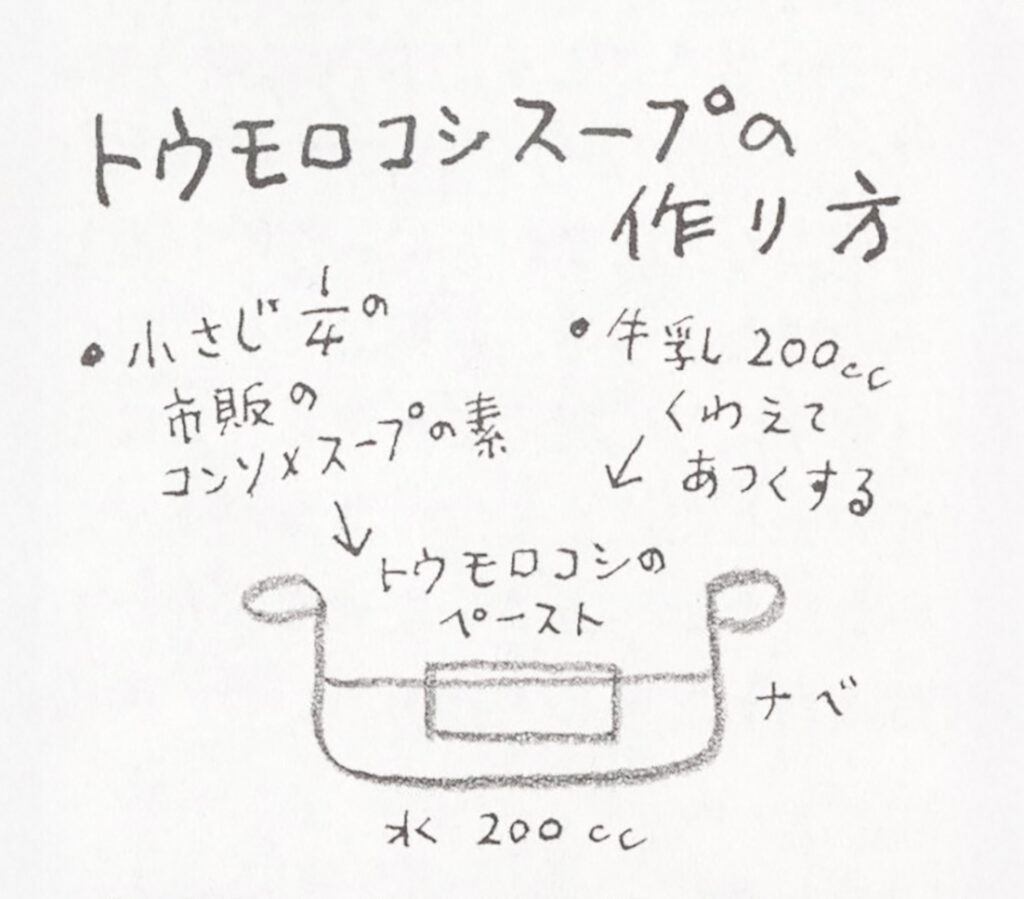 トウモロコシスープの
作り方
• 小さじ 1/4の
市販の
コンソメスープの素
• 牛乳 200cc
くわえて
あつくする
トウモロコシの
ペースト
ナベ
水 200cc